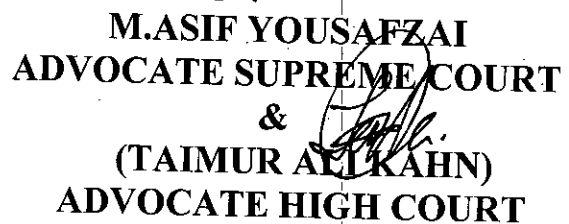 M.ASIF YOUSAFZAI
ADVOCATE SUPREME COURT
&
(TAIMUR ALI KAHN)
ADVOCATE HIGH COURT